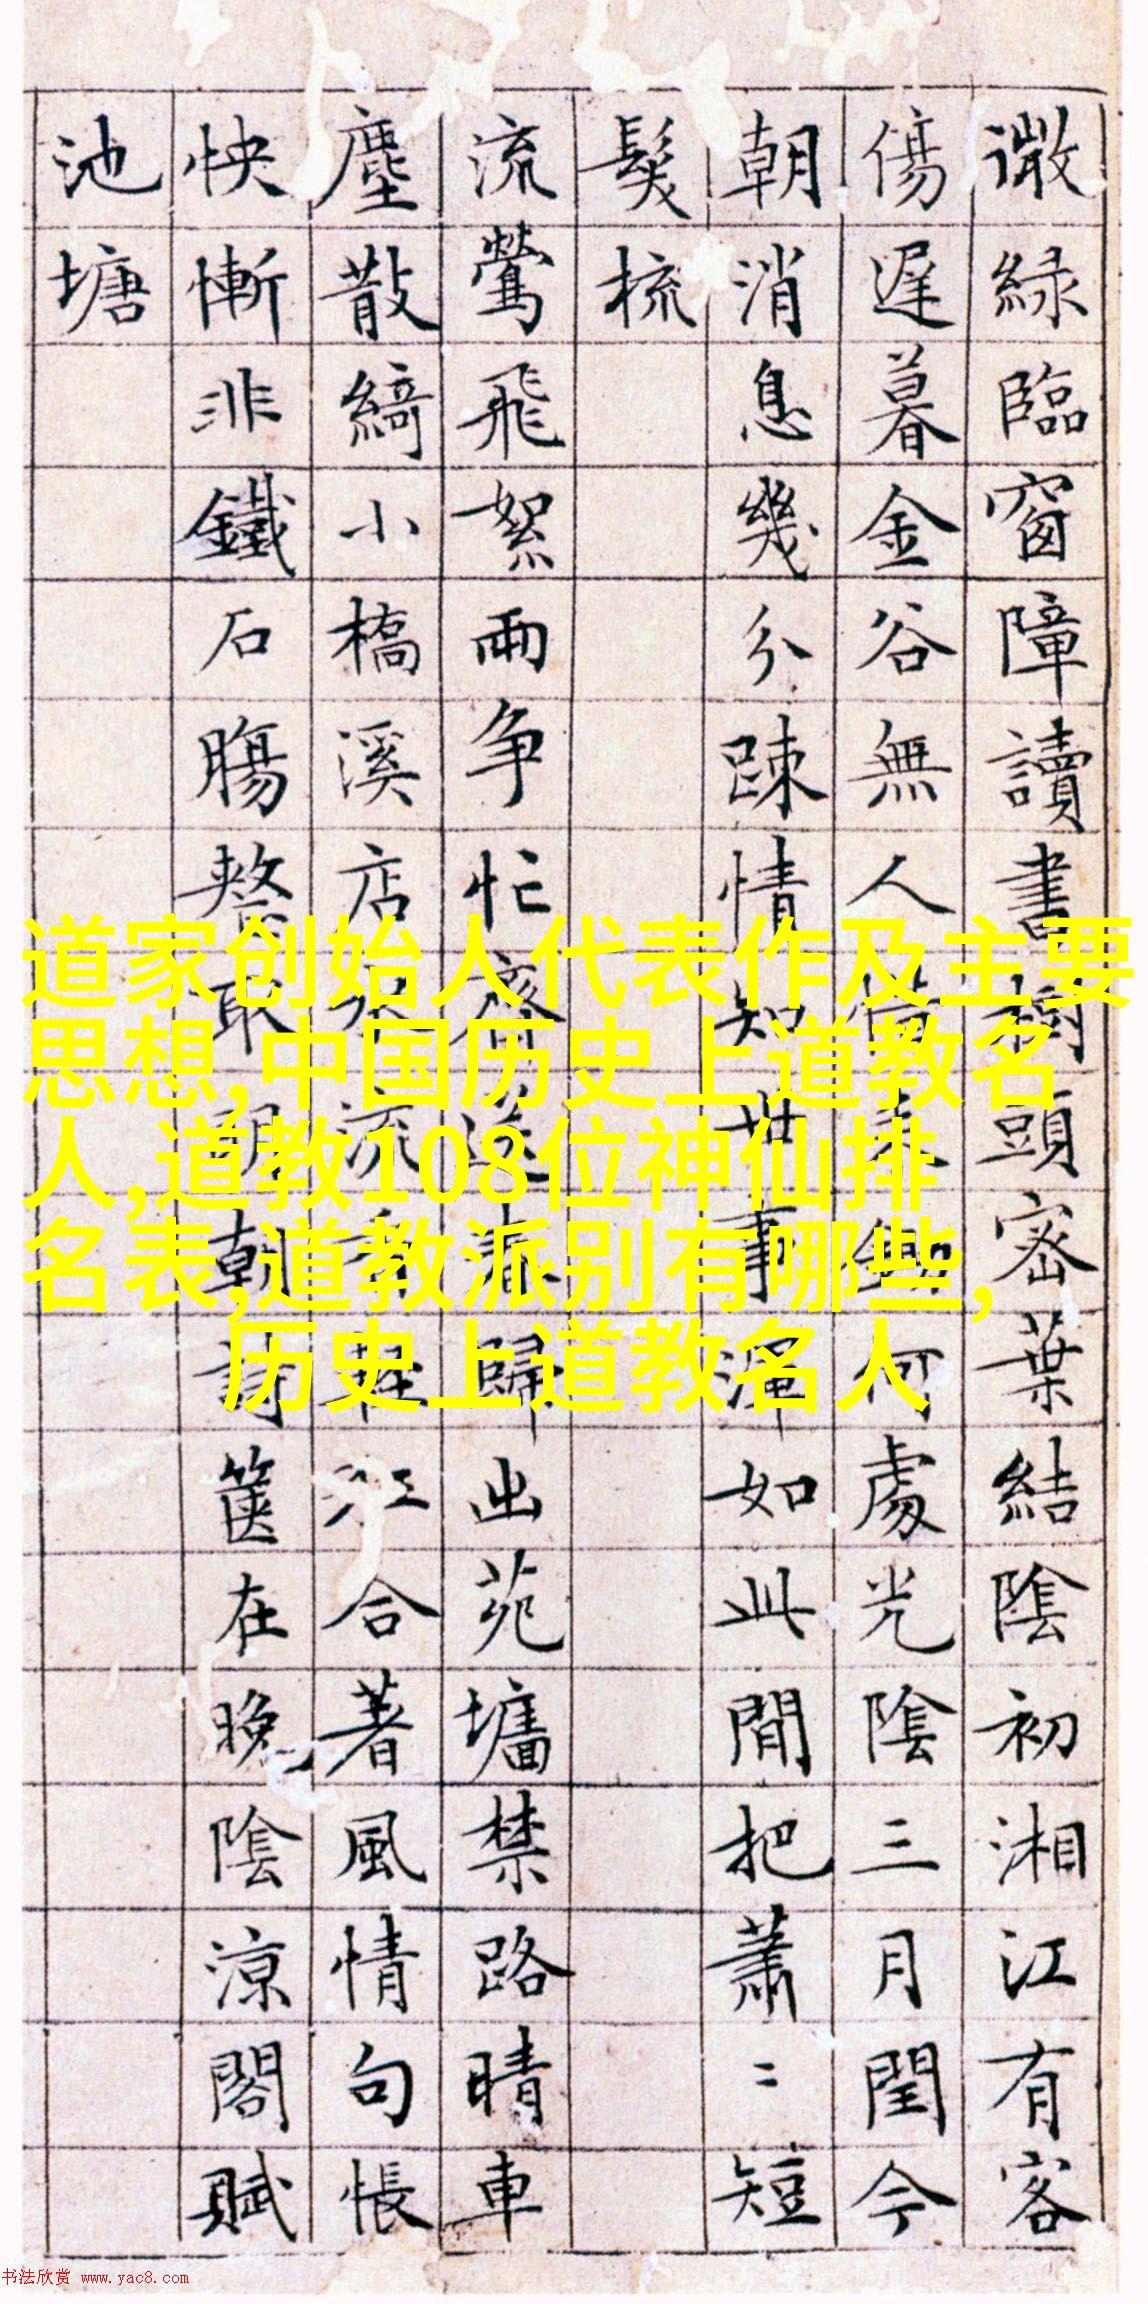 微綠臨窗障讀書樹頭密葉結陰初湘江有客
傷遲暮金谷無人何處光陰三月閏今
朝消息幾分踈情知世事渾如此間把蕭〻短
鬢梳
流鶯飛絮兩爭忙齊送春歸出苑墻禁路晴車
塵散綺小橋溪店水流香輕紅合著風情句悵
怏慚非鐵石腸取明朝詩篋在晚陰涼閣賦
池塘
道家创始人代表作及主要
思想,中国历史上道教名
人,道教108位神仙排
名表,道教派别有哪些,
历史上道教名人
书法欣赏 www.yac8.com